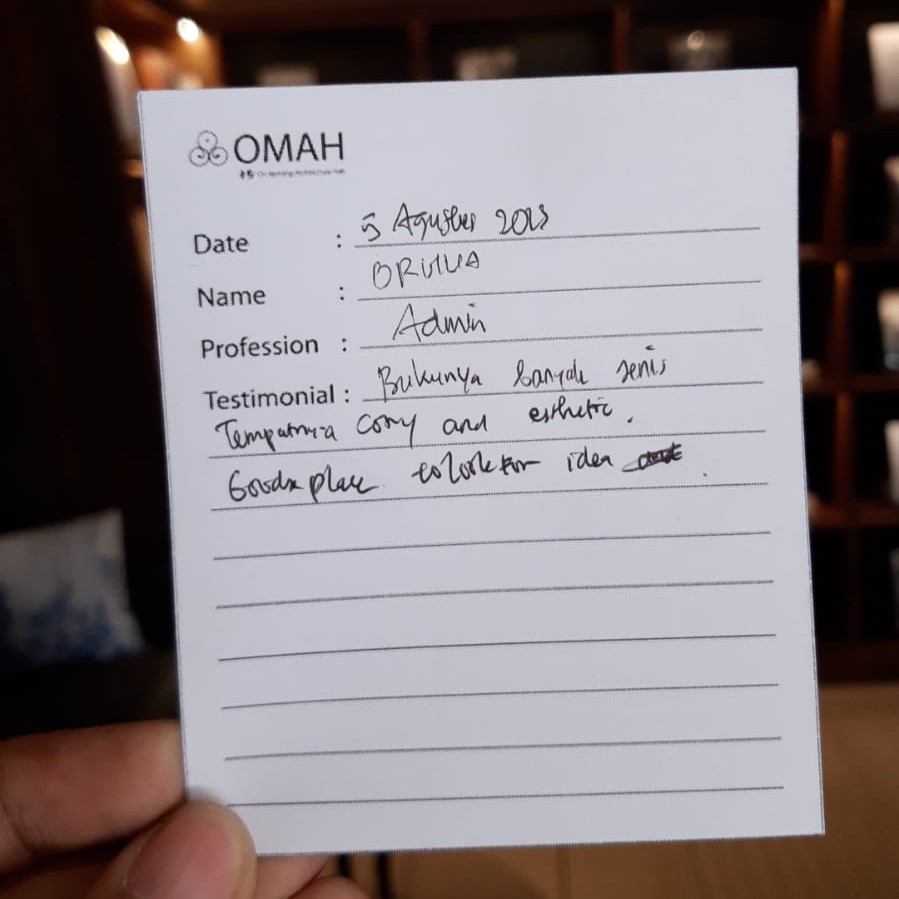 OMAH
Date : 5 Agustus
Name :
Profession : Admin
Testimonial : Bukunya banyak jenis
Tempatnya cozy and esthetic.
Good place to look for idea .